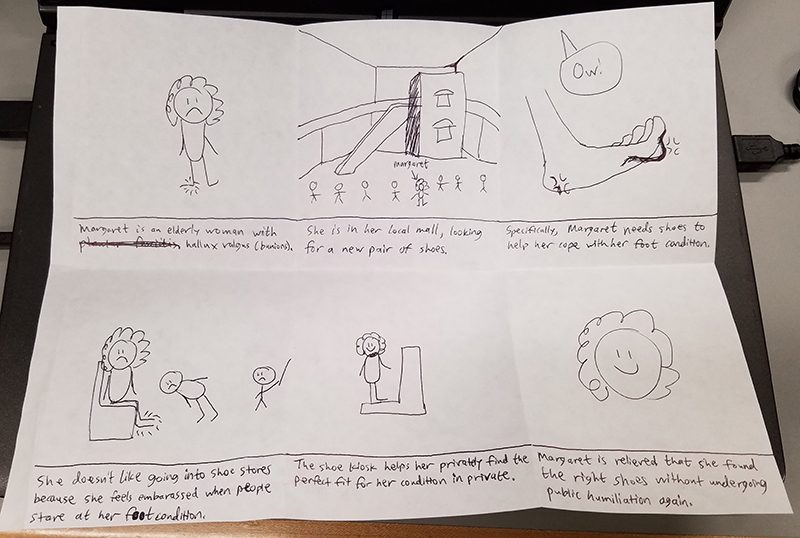 Margaret is an elderly woman with
hallux valgus (bunions).
margaret
She is in her local mall, looking
for a new pair of shoes.
Ow!
Specifically, Margaret needs shoes to
help her cope with her foot condition.
She doesn't like going into shoe stores
because she feels embarassed when people
stare at her foot condition.
The shoe kiosk helps her privately find the
perfect fit for her condition in private.
Margaret is relieved that she found
the right shoes without undergoing
public humiliation again.